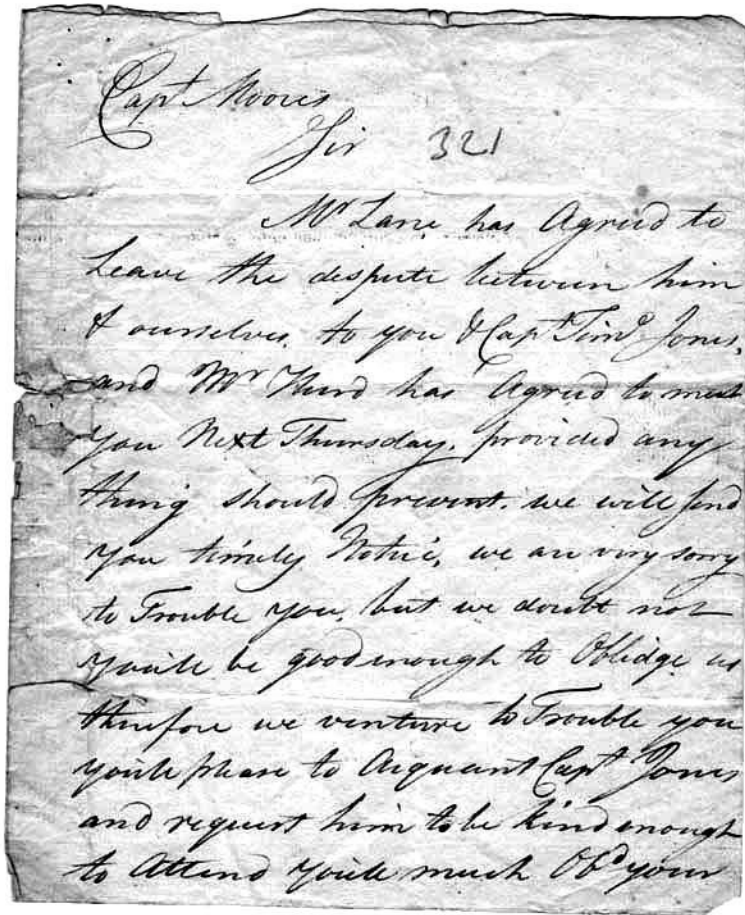 Capt Moores
Sir 321
Mr Lane has Agreed to
Leave the dispute between him
& ourselves, to you & Capt Timo Jones,
and Mr Hurd has Agreed to meet
you Next Thursday, provided any
thing should prevent. we will send
you timely Notice, we are very sorry
to Trouble you, but we doubt not
youile be good enough to Oblidge us
therefore we venture to Trouble you
youile please to Acquaint Capt Jones
and request him to be kind enough
to Attend youile much Obd your